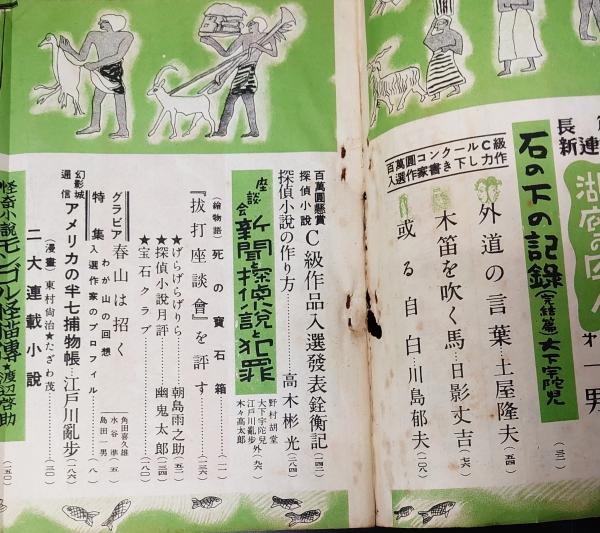 長
新連
湖底の囚人
一男
石の下の記録
(完結篇)
大下宇陀児
(三一)
百萬圓コンクールC級
入選作家書き下し力作
外道の言葉…土屋隆夫
(五四)
木笛を吹く馬…日影丈吉
(七六)
或る自白…川島郁夫
(二〇八)
百萬圓懸賞
探偵小説
C級作品入選發表銓衡記
(一四二)
探偵小説の作り方…高木彬光
(二八四)
座談会
新聞・探偵小説と犯罪
野村胡堂
大下宇陀兒
江戸川亂步
木々高太郎
外
(九六)
(繪物語)
死の寶石箱
(一一)
『抜打座談會』を評す
(一三六)
★げらげらげりら…朝島雨之助
(五二)
★探偵小説月評…幽鬼太郎
(二三四)
★宝石クラブ
(一八〇)
グラビア
春山は招く
特集
わが山の回想
入選作家のプロフィル
角田喜久雄
水谷準
島田一男
(五)
(八)
幻影城
通信
アメリカの半七捕物帳…江戸川亂步
(一八六)
(漫畫)
東村尚治★たざわ茂
(三〇)
二大連載小説
怪奇小説
モンゴル怪猫傳
★渡辺啓助
(一五〇)